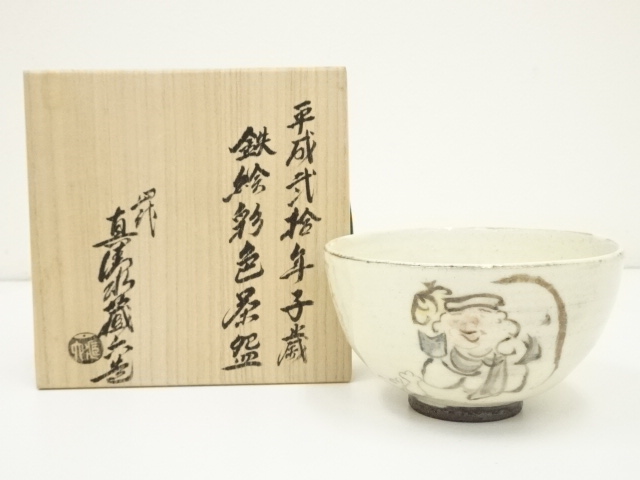 平成弐拾年子歳
鉄絵彩色茶盌
四代
真清水蔵六造